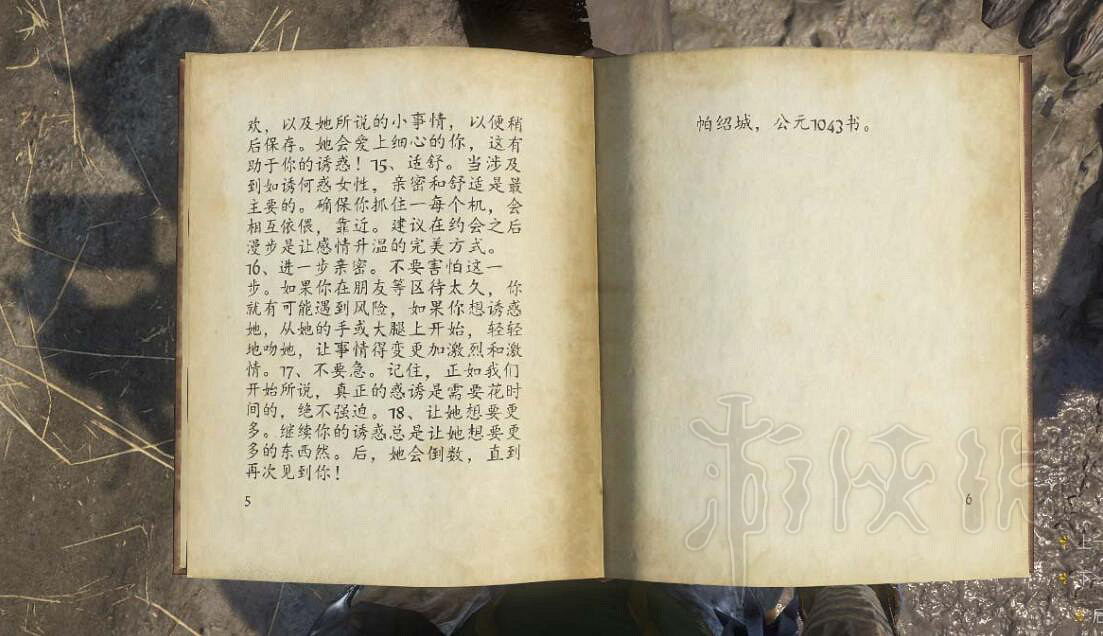 欢，以及她所说的小事情，以便稍
后保存。她会爱上细心的你，这有
助于你的诱惑！15、适舒。当涉及
到如诱何惑女性，亲密和舒适是最
主要的。确保你抓住一每个机，会
相互依偎，靠近。建议在约会之后
漫步是让感情升温的完美方式。
16、进一步亲密。不要害怕这一
步。如果你在朋友等区待太久，你
就有可能遇到风险，如果你想诱惑
她，从她的手或大腿上开始，轻轻
地吻她，让事情得变更加激烈和激
情。17、不要急。记住，正如我们
开始所说，真正的惑诱是需要花时
间的，绝不强迫。18、让她想要更
多。继续你的诱惑总是让她想要更
多的东西然。后，她会倒数，直到
再次见到你！
5
帕绍城，公元1043书。
6
游侠
上
后